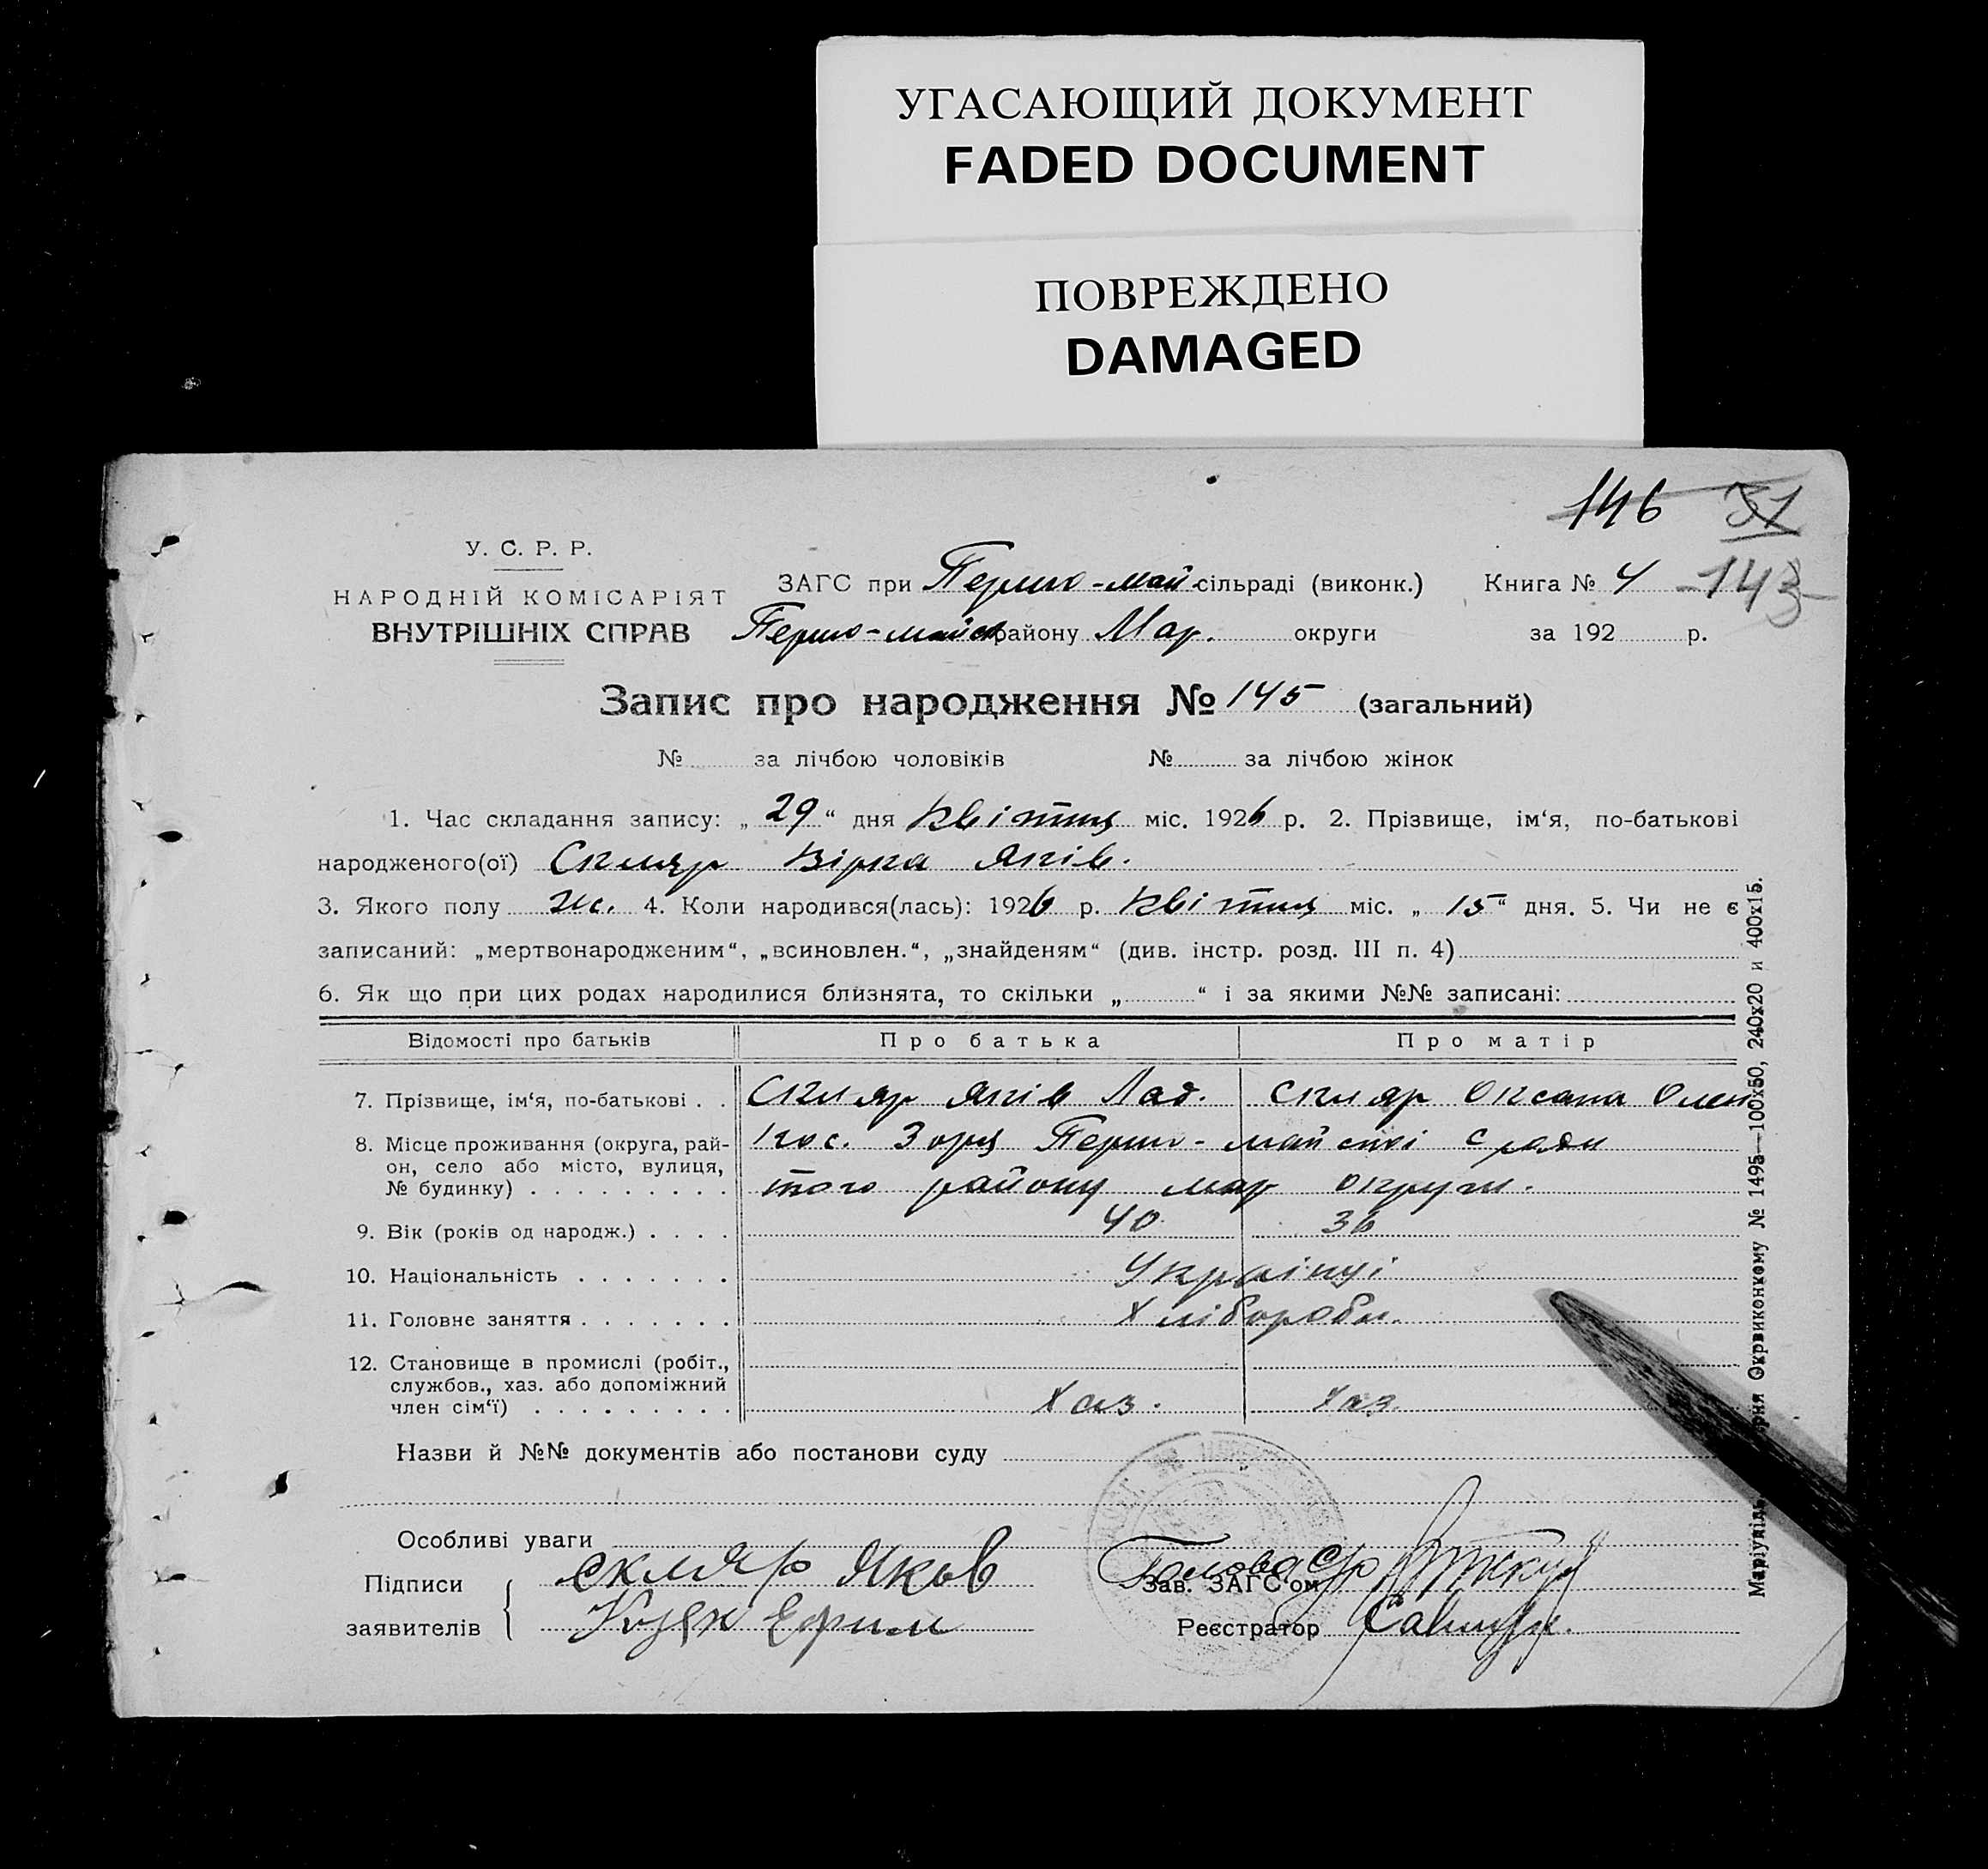 УГАСАЮЩИЙ ДОКУМЕНТ
FADED DOCUMENT
ПОВРЕЖДЕНО
DAMAGED
146 31
У. С. Р. Р.
НАРОДНІЙ КОМІСАРІЯТ
ВНУТРІШНІХ СПРАВ
ЗАГС при Першо-май-сільраді (виконк.) Книга № 4 143
Першо-майск району Мар. округи за 192 р.
Запис про народження № 145 (загальний)
№ за лічбою чоловіків № за лічбою жінок
1. Час складання запису: „29“ дня квітня міс. 1926 р. 2. Прізвище, ім‘я, по-батькові
народженого(ої) Скляр Вірка Яків.
3. Якого полу жс. 4. Коли народився(лась): 1926 р. квітня міс. „15“ дня. 5. Чи не є
записаний: „мертвонародженим“, „всиновлен.“, „знайденям“ (див. інстр. розд. III п. 4)
6. Як що при цих родах народилися близнята, то скільки „ “ і за якими №№ записані:
Відомості про батьків Про батька Про матір
7. Прізвище, ім‘я, по-батькові . . Скляр Яків Лад. Скляр Оксана Олек
8. Місце проживання (округа, рай- Зоря Першо-майскої
он, село або місто, вулиця,
№ будинку) . . . . . . . . . того району мар округи.
9. Вік (років од народж.) . . . . 40 36
10. Національність . . . . . . . Українці
11. Головне заняття . . . . . . . Хлібороби.
12. Становище в промислі (робіт.,
службов., хаз. або допоміжний
член сім‘ї) . . . . . . . . . Хаз. Хаз.
Назви й №№ документів або постанови суду
Особливі уваги
Підписи скляр Яков Голова С/р Зав. ЗАГС‘ом
заявителів Ефим Реєстратор
Окрвиконкому № 1495—100х50, 240х20 и 400х15.